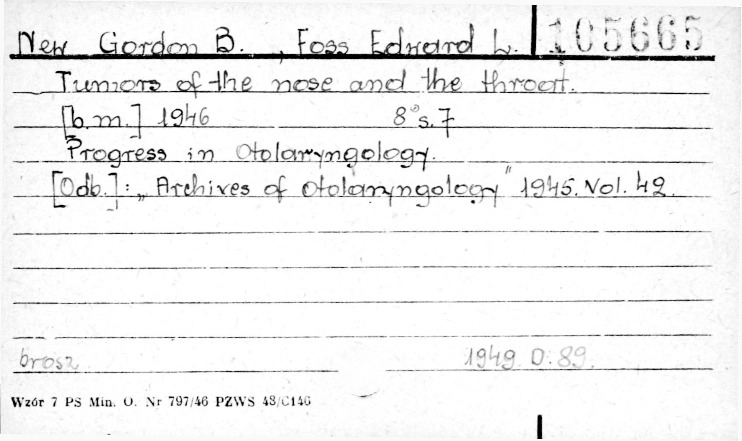 New Gordon B., Foss Edward L. 105665
Tumors of the nose and the throat.
[b.m.] 1946 8° s. 7
Progress in Otolaryngology.
[Odb.]: „Archives of otolaryngology" 1945. Vol. 42.
brosz. 1949 D. 89.
Wzór 7 PS Min. O. Nr 797/46 PZWS 48/C146